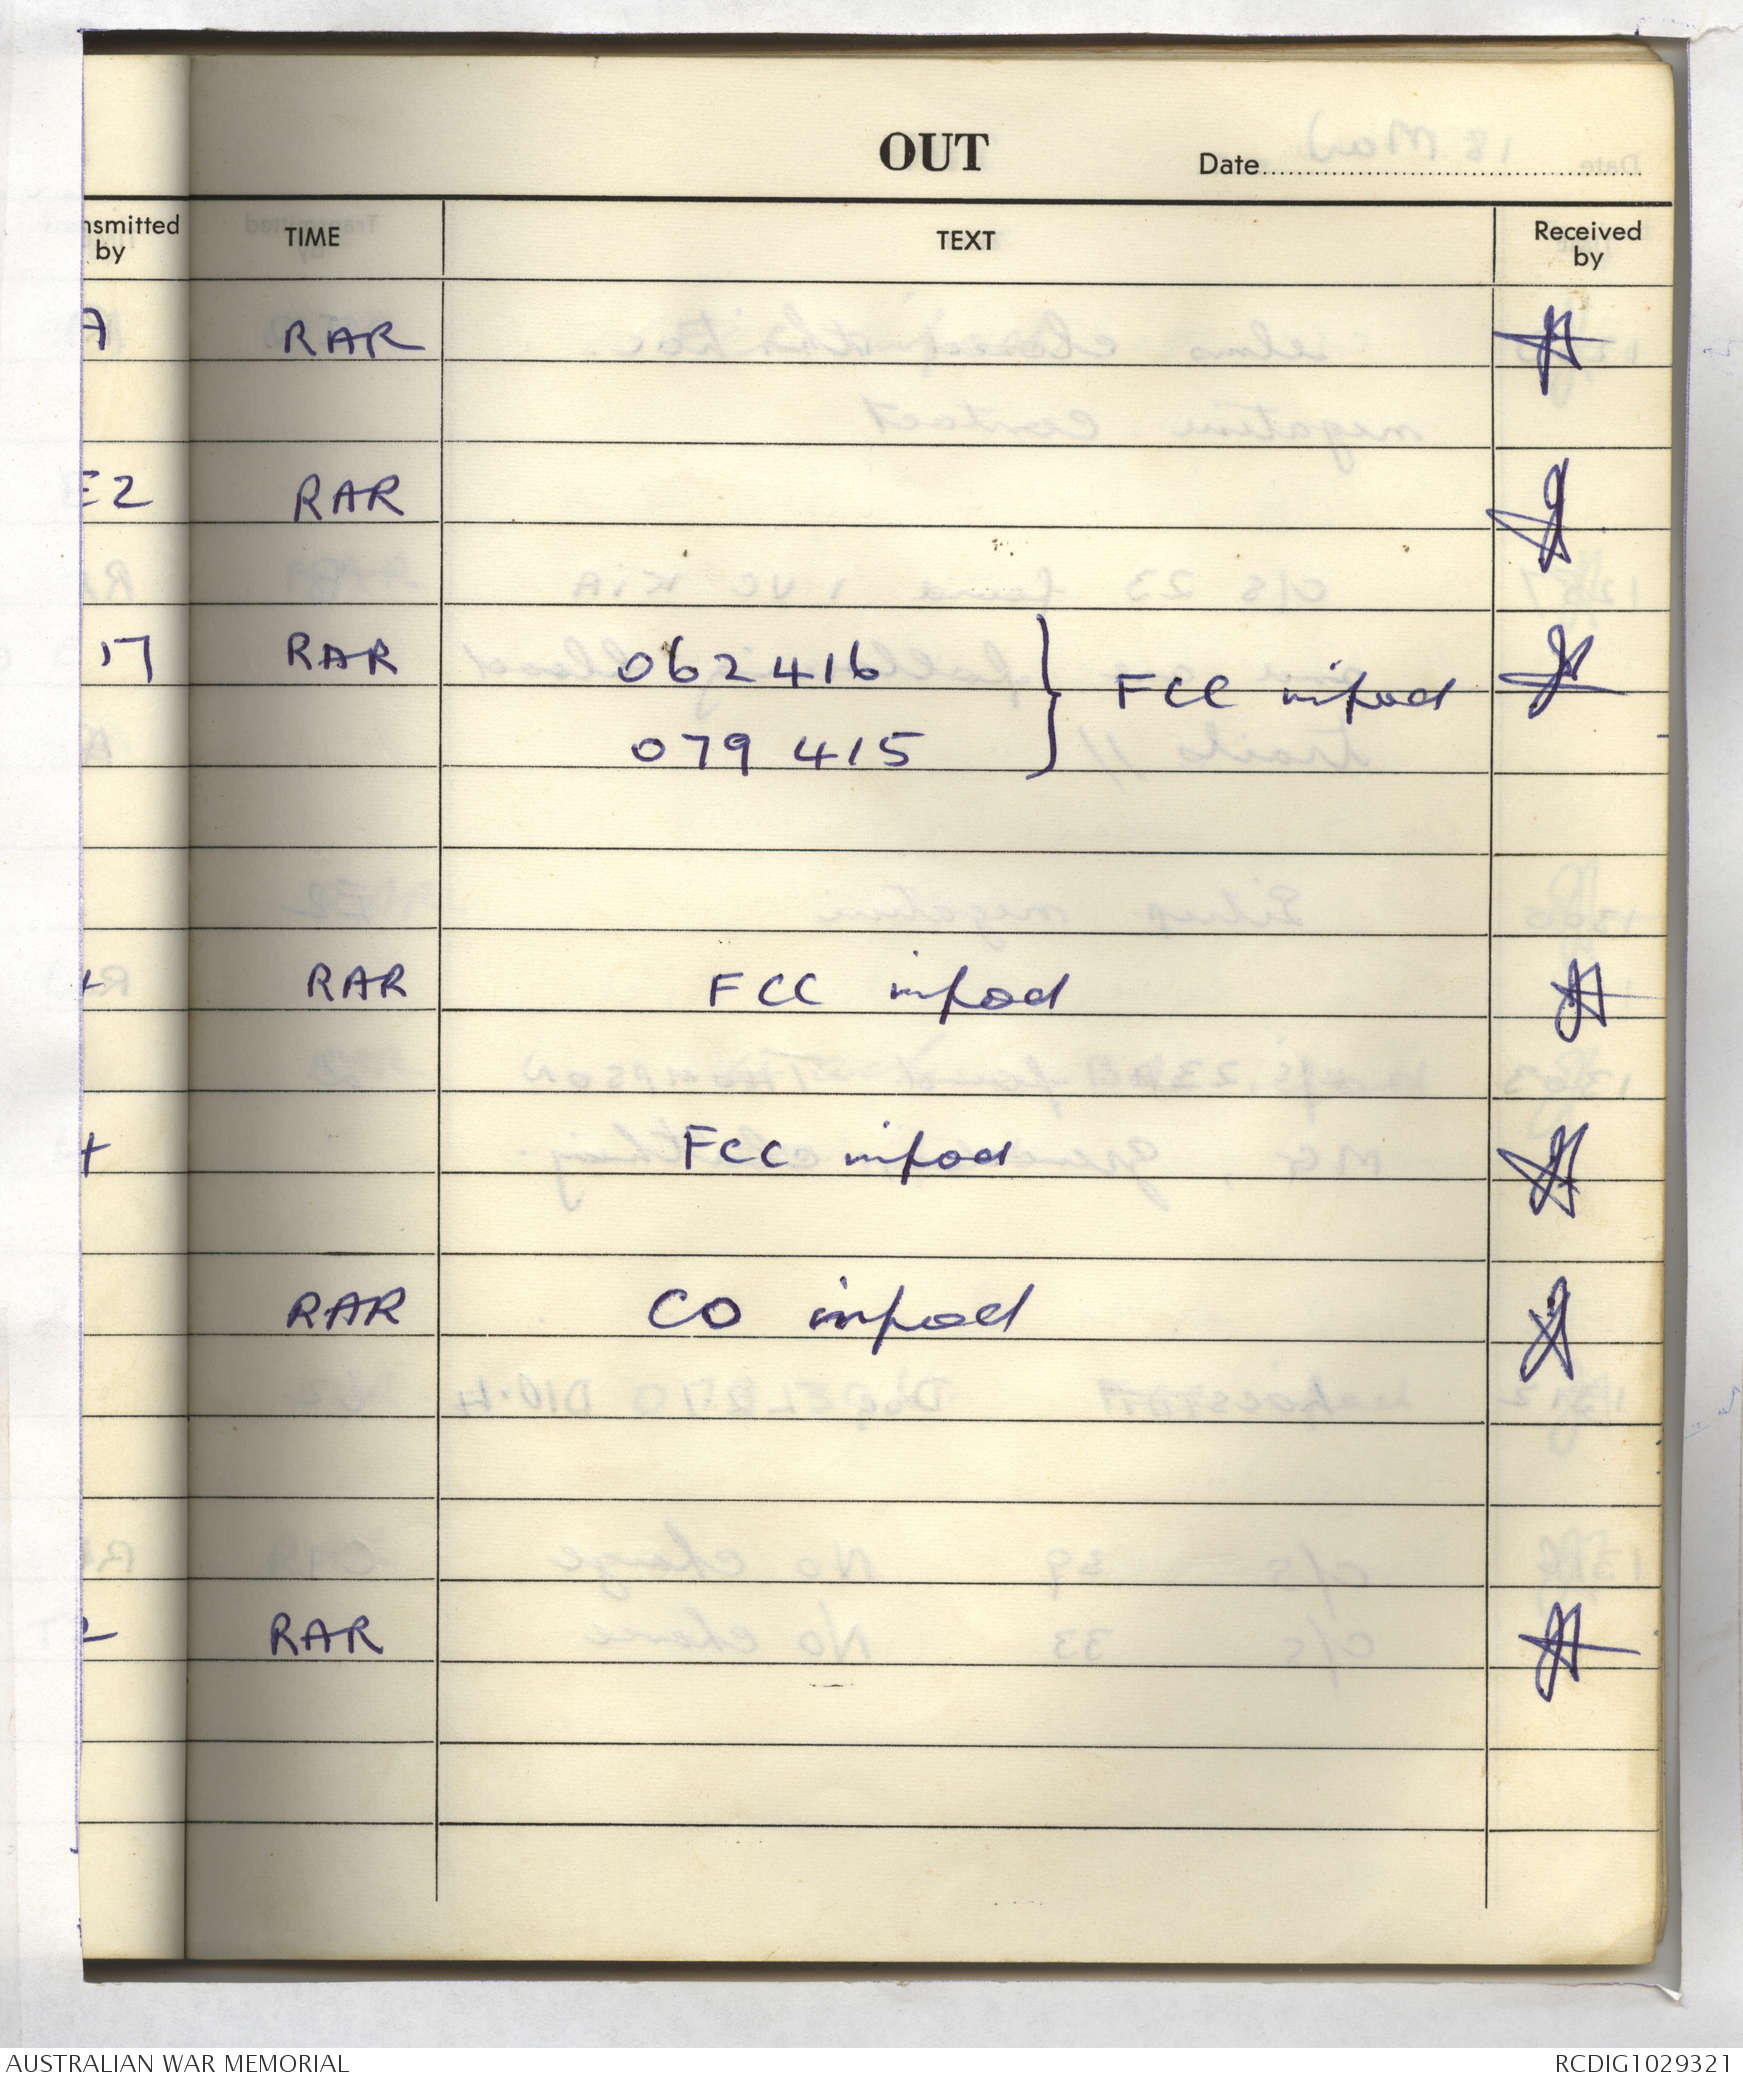 OUT
Date
nsmitted by TIME TEXT Received by
A RAR
E2 RAR
17 RAR 062416 } FCC infod
079 415
RAR FCC infod
FCC infod
RAR CO infod
RAR
AUSTRALIAN WAR MEMORIAL RCDIG1029321